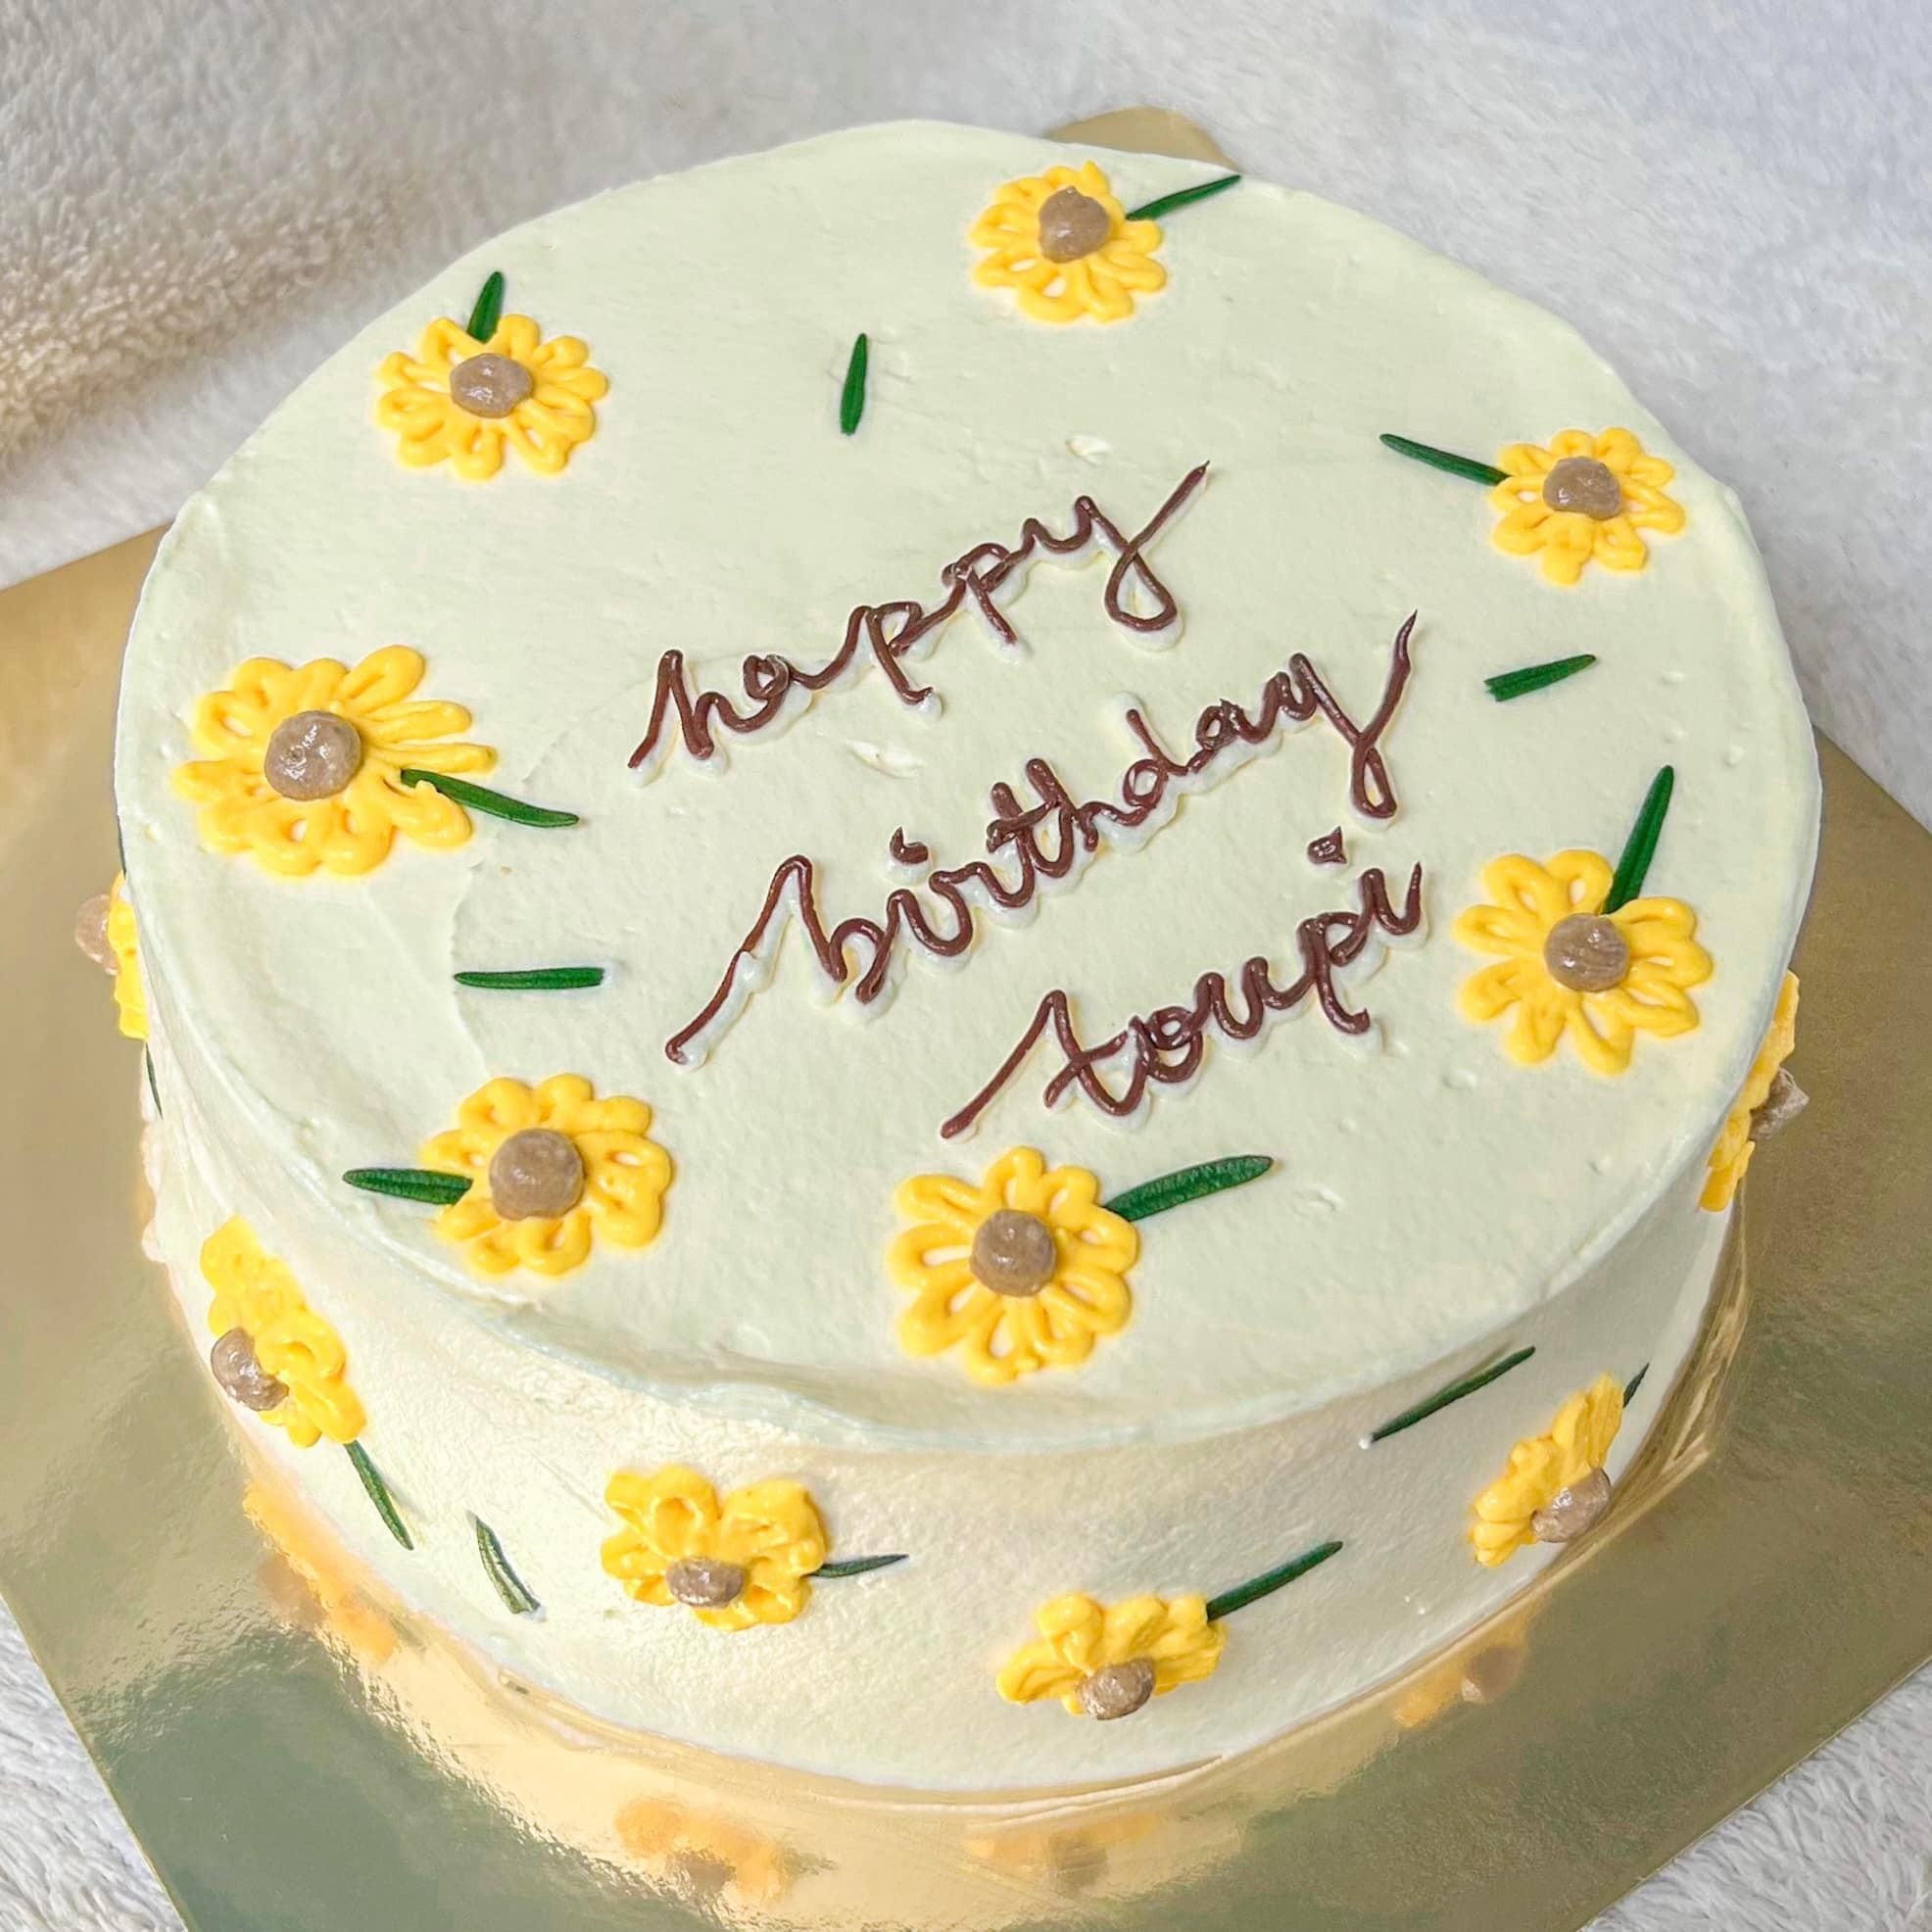 happy
birthday
toupi